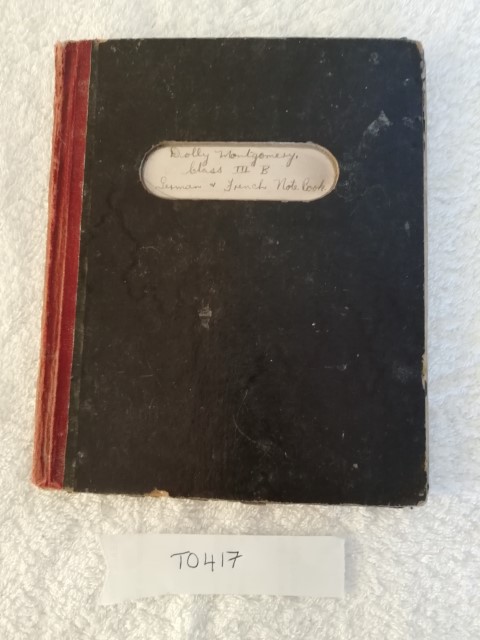 Dolly Montgomery.
Class III B
German & French Note Book
T0417